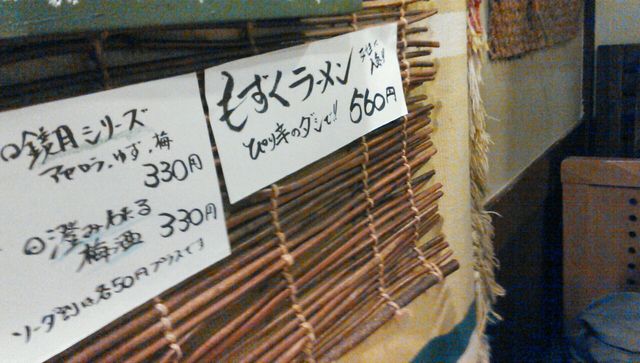 鏡月シリーズ
アセロラ、ゆず、梅
330円
澄みわたる
梅酒
330円
ソーダ割りは各50円プラスです
もずくラーメン
ぴり辛のダシで!!
560円